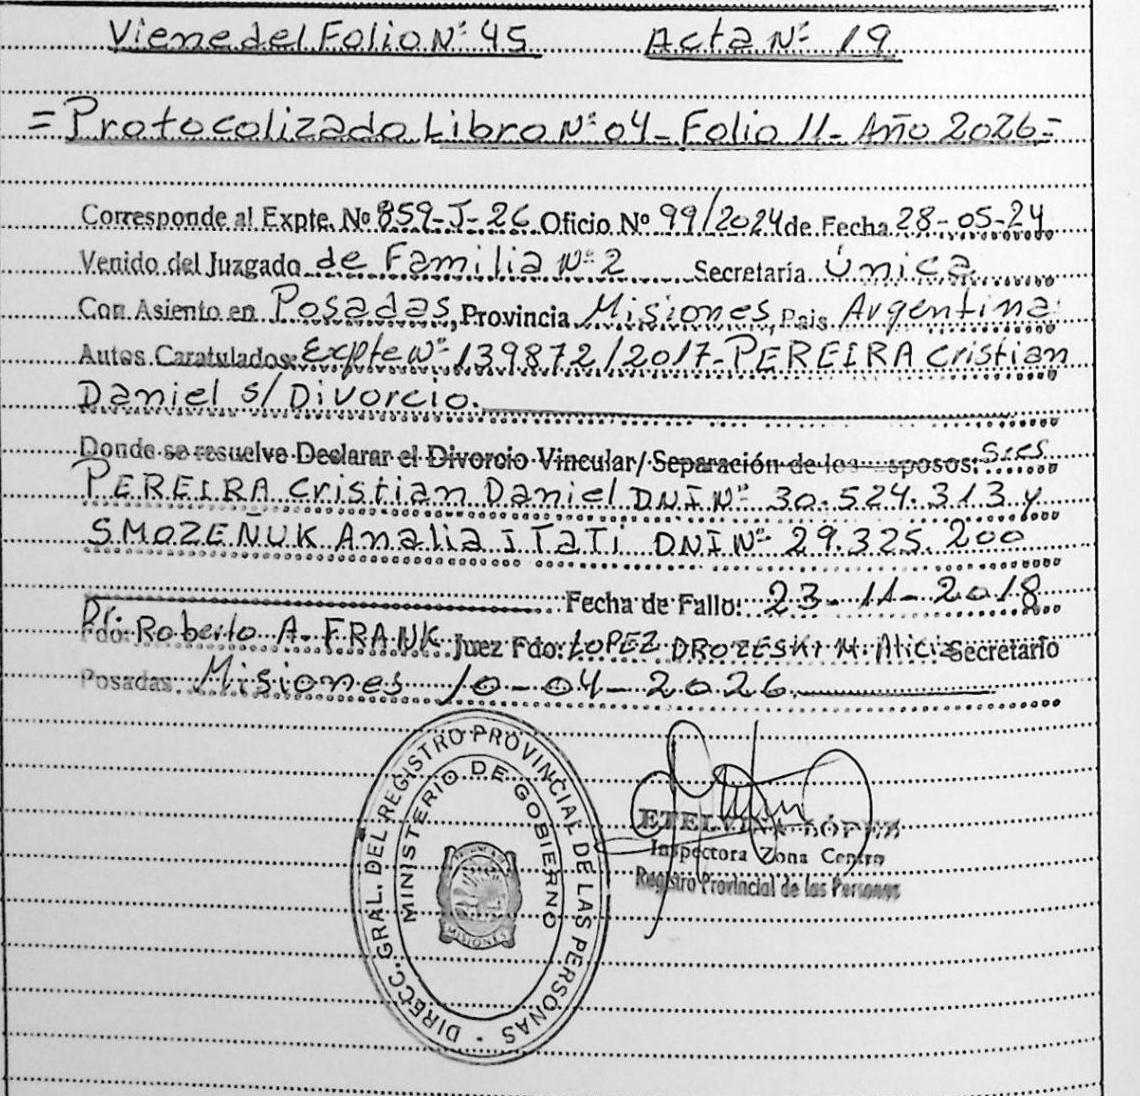 Viene del Folio Nº 45 Acta Nº 19
=Protocolizado Libro Nº 04- Folio 11- Año 2026=
Corresponde al Expte. Nº 859-J-26 Oficio Nº 99/2024 de Fecha 28-05-24
Venido del Juzgado de Familia Nº 2 Secretaría Única
Con Asiento en Posadas, Provincia Misiones, Pais Argentina
Autos Caratulados: Expte Nº 139872/2017-PEREIRA Cristian
Daniel s/Divorcio.
Donde se resuelve Declarar el Divorcio Vincular/ Separación de los sposos: Sres
PEREIRA Cristian Daniel DNI Nº 30.524.313 y
SMOZEÑUK Analia iTATi DNI Nº 29.325.200
Fecha de Fallo: 23-11-2018
Fdo: Dr. Roberto A. FRANK Juez Fdo: LOPEZ DROZESKI M. Alicia Secretario
Posadas: Misiones 10-04-2026
DIRECC. GRAL. DEL REGISTRO PROVINCIAL DE LAS PERSONAS
MINISTERIO DE GOBIERNO
MISIONES
ETELVINA LÓPEZ
Inspectora Zona Centro
Registro Provincial de las Personas